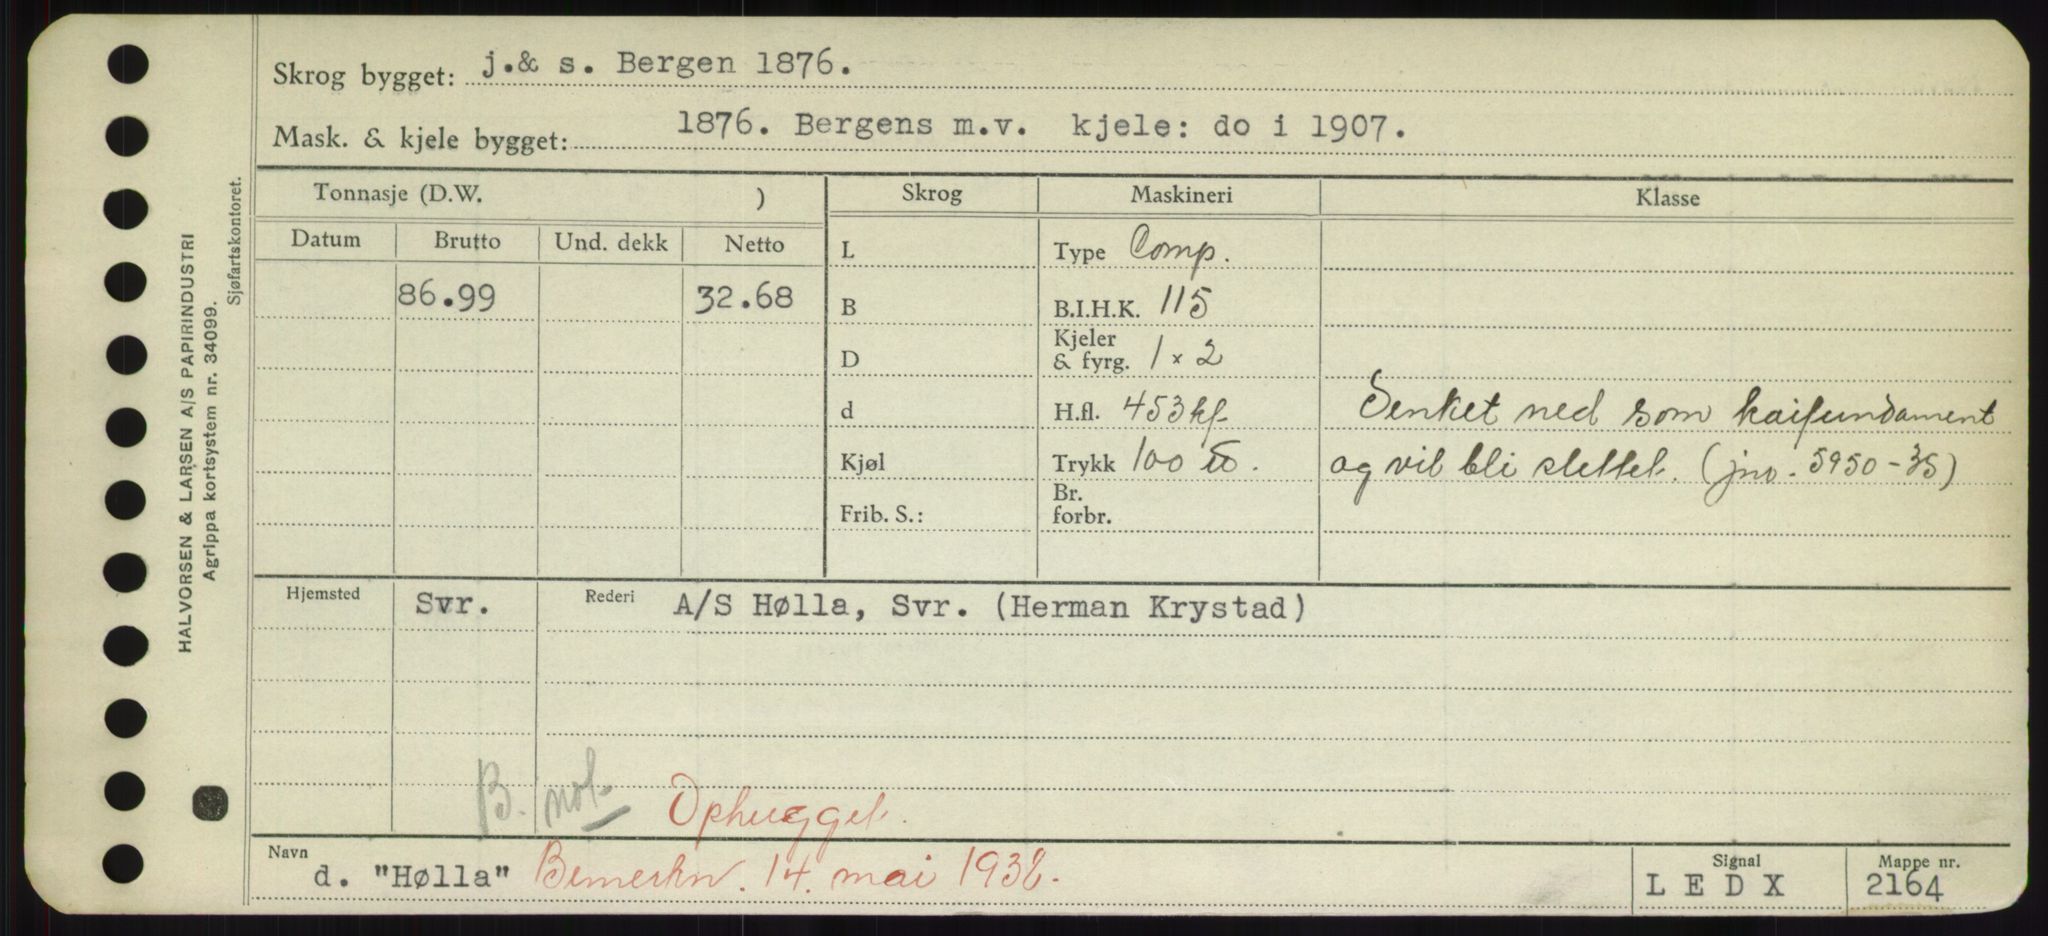 Skrog bygget: j.& s. Bergen 1876.
Mask. & kjele bygget: 1876. Bergens m.v. kjele: do i 1907.
Tonnasje (D.W. ) Skrog Maskineri Klasse
Datum Brutto Und. dekk Netto
L Type Comp.
86.99 32.68 B B.I.H.K. 115
D Kjeler & fyrg. 1 x 2
d H.fl. 453 kf. Senket ned som kaifundament
Kjøl Trykk 100 ℔. og vil bli slettet. (jno. 5950-35)
Frib. S.: Br. forbr.
Hjemsted Svr. Rederi A/S Hølla, Svr. (Herman Krystad)
B. not. Ophugget.
Navn d. "Hølla" Bemerkn. 14. mai 1938. Signal LEDX Mappe nr. 2164
HALVORSEN & LARSEN A/S PAPIRINDUSTRI
Agrippa kortsystem nr. 34099.
Sjøfartskontoret.